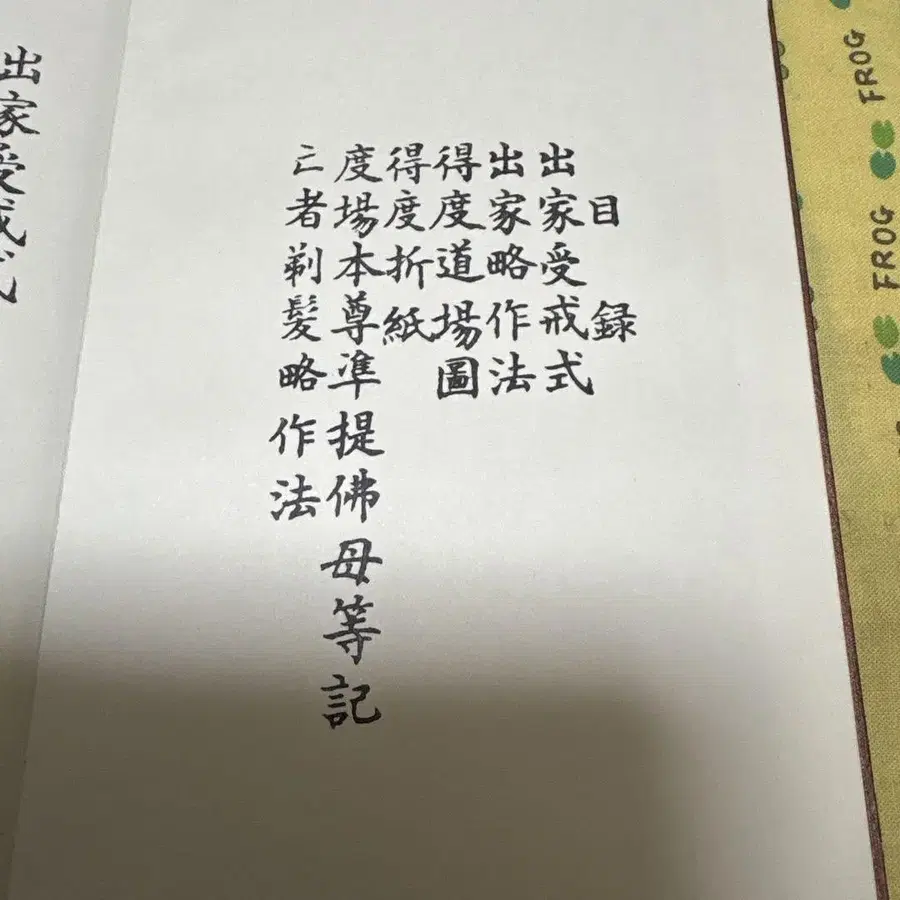 目録
出家受戒式
出家略作法
得度道場圖
得度折紙
度場本尊準提佛母等記
亡者剃髮略作法
出家受戒式
FROG
FROG